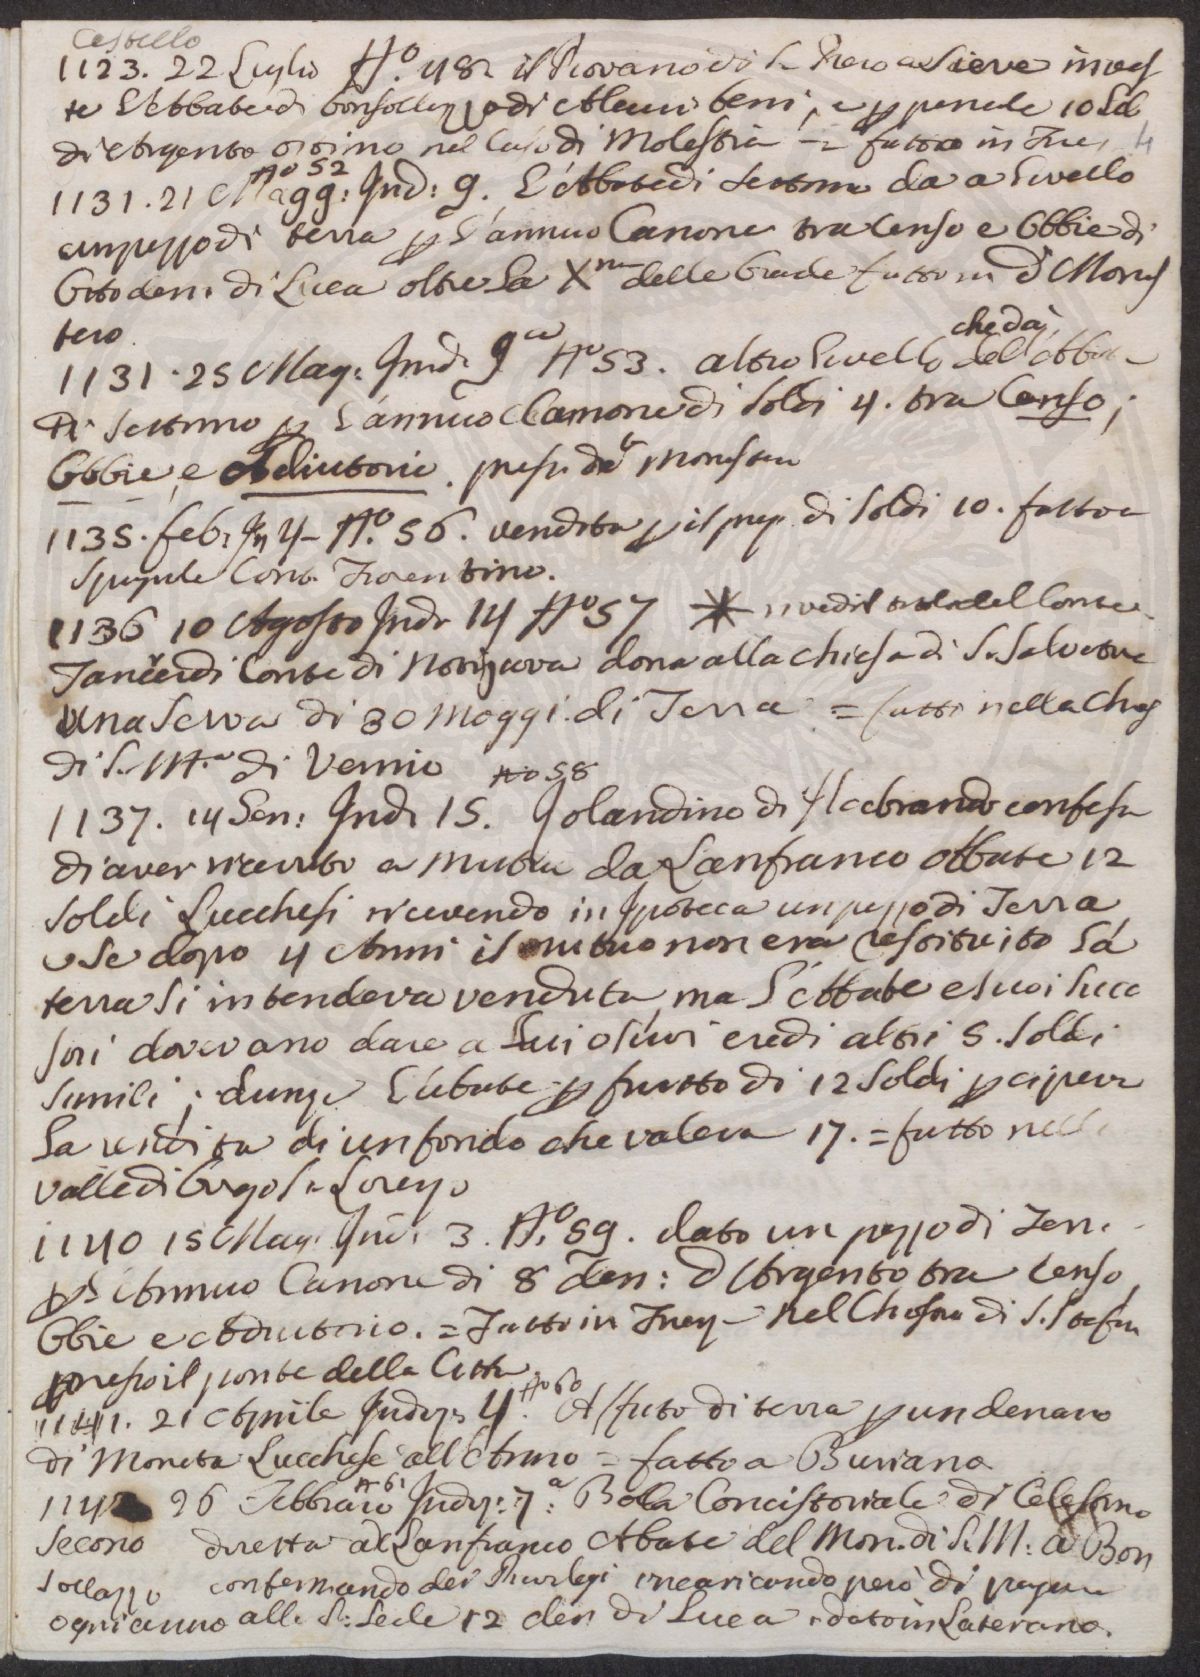 Castello
1123. 22 Luglio N.º 48 il Piovano di S. Piero a Sieve inves
te L'Abbate di Bonsollazzo di Alcuni beni, e p penale 10 Sol
di Argento ossimo nel Caso di Molestia = fatto in Firen 4
Nº 52
1131. 21 Magg: Ind: 9. L'Abbate di Settimo da a livello
un pezzo di terra p L'annuo Canone tra Censo e Obbie di
Otto den. di Lucca oltre la Xma delle biade fatto in do Monas
tero
che da
1131. 25 Mag: Indi 9a Nº 53. altro Livello dell'Abbate
di Settimo p L'annuo Canone di Soldi 4. tra Censo,
Obbie, e Adiutorio. presso do Monastero
1135. Feb. In 4 - Nº. 56. vendita p il prezzo di Soldi 10. fatto a
Spugnole Cont. Fiorentino.
1136 10 Agosto Indi 14 Nº 57 * vedi del Conte
Tancredi Conte di dona alla chiesa di S. Salvatore
una di 30 Moggi di Terra = fatto nella Chies
di S. Ma di Vernio Nº 58
1137. 14 Gen: Indi 15. Jolandino di Ildebrando confessa
di aver ricevuto a mutuo da Lanfranco Abbate 12
Soldi Lucchesi ricevendo in Ipoteca un pezzo di Terra
e Se dopo 4 Anni il mutuo non era restituito La
terra Si intendeva venduta, ma L'Abbate e suoi Succ
sori dovevano dare a Lui o suoi eredi altri 5. Soldi
simili; dunque L'Abate p frutto di 12 Soldi p cipeva
La rendita di un fondo che valeva 17. = fatto nella
valle di Borgo S. Lorenzo
1140 15 Mag. Indi. 3. Nº. 59. dato un pezzo di Terra
p L'Annuo Canone di 8 den: d'Argento tra Censo,
Obbie e Adiutorio. = Fatto in Firen - nel Chiostro di S. Stefano
presso il ponte della Città.
Nº 60
1141. 21 Aprile Indiz: 4. Affitto di terra p un denaro
di Moneta Lucchese all'Anno = fatto a Buriano
Nº 61
114 26 Febbraio Indiz: 7.a Bolla Concistoriale di Celestino
Secondo diretta al Lanfranco Abate del Mon. di S. M: a Bon
Sollazzo confermando dei Privilegi incaricando però di pagare
ogni anno alla S: Sede 12 den di Lucca. dato in Laterano.